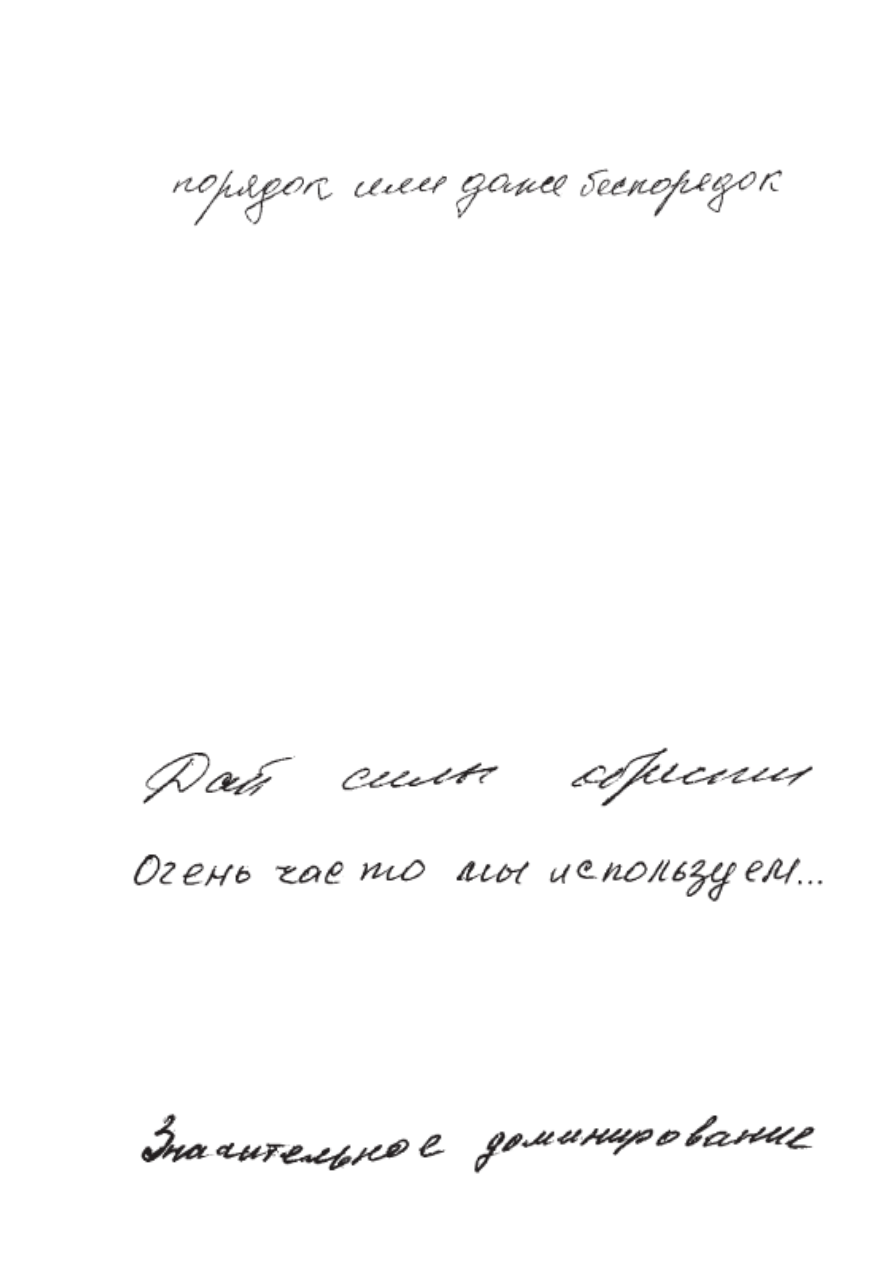 порядок или даже беспорядок
Дай силы обрести
Очень часто мы используем...
Значительное доминирование